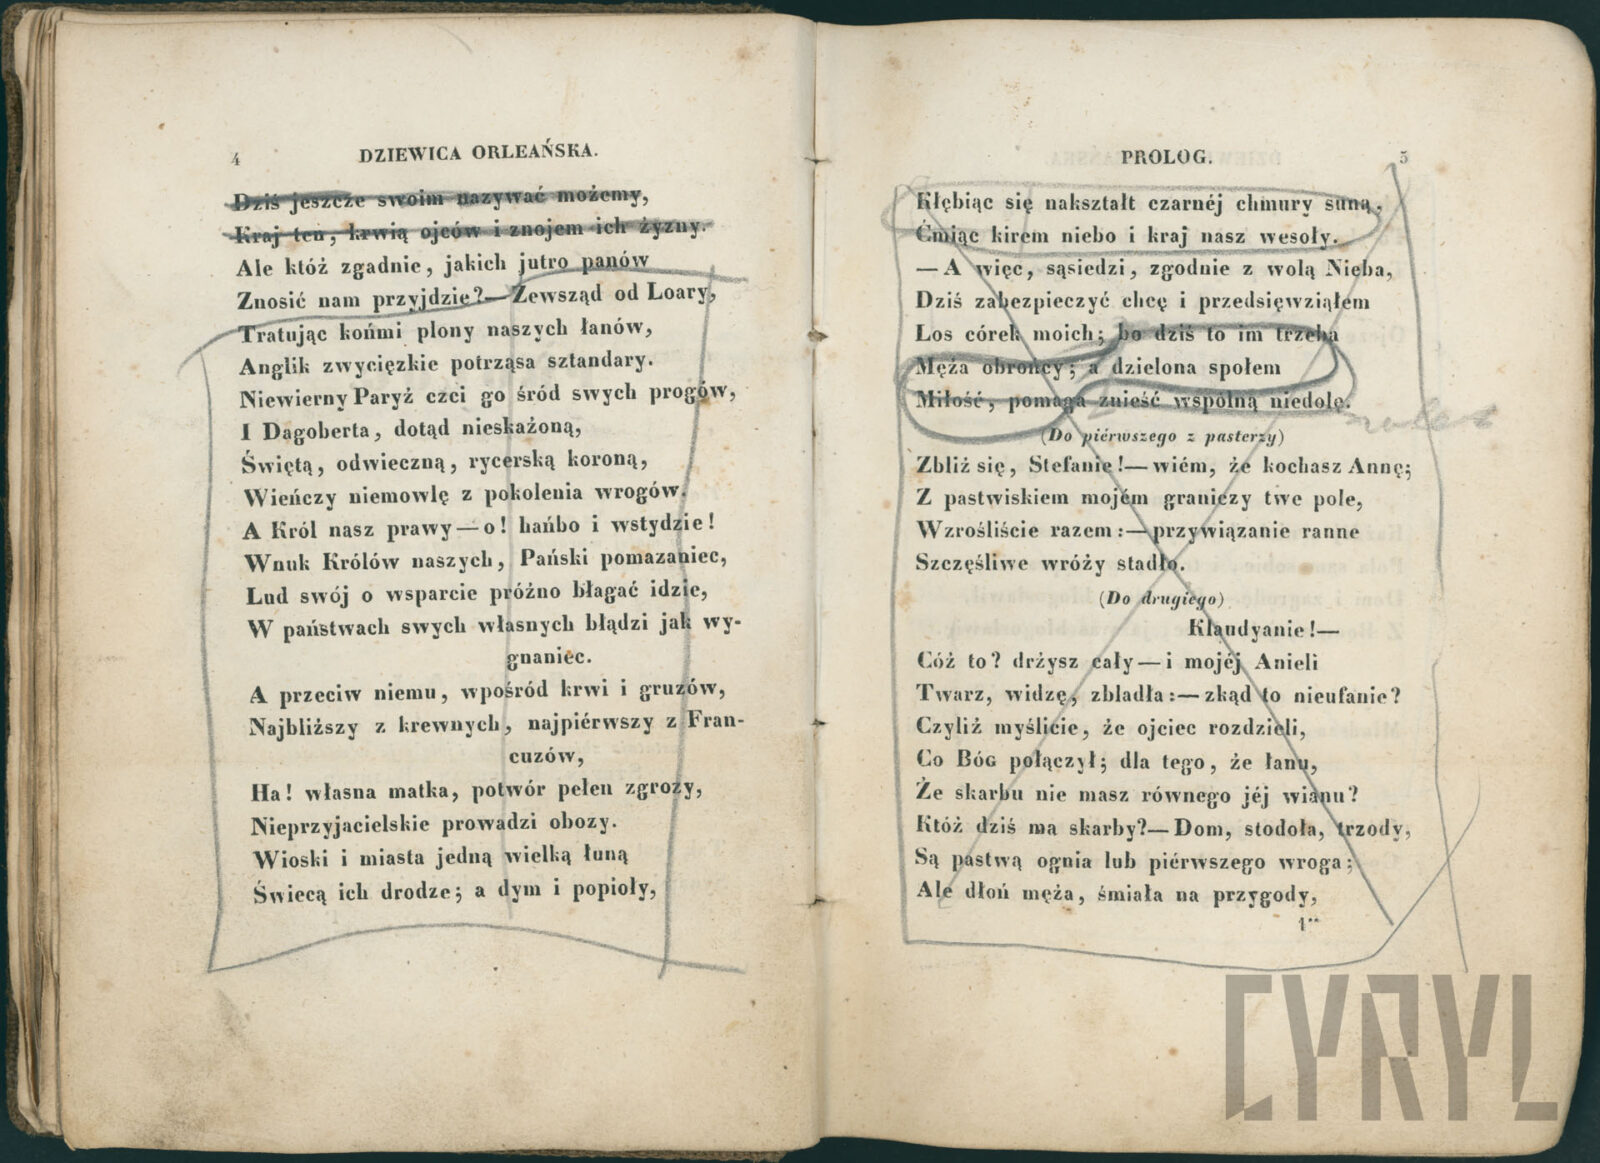 4
DZIEWICA ORLEAŃSKA.
Dziś jeszcze swoim nazywać możemy,
Kraj ten, krwią ojców i znojem ich żyzny.
Ale któż zgadnie, jakich jutro panów
Znosić nam przyjdzie?—Zewsząd od Loary,
Tratując końmi plony naszych łanów,
Anglik zwycięzkie potrząsa sztandary.
Niewierny Paryż czci go śród swych progów,
I Dagoberta, dotąd nieskażoną,
Świętą, odwieczną, rycerską koroną,
Wieńczy niemowlę z pokolenia wrogów.
A Król nasz prawy—o! hańbo i wstydzie!
Wnuk Królów naszych, Pański pomazaniec,
Lud swój o wsparcie próżno błagać idzie,
W państwach swych własnych błądzi jak wy-
gnaniec.
A przeciw niemu, wpośród krwi i gruzów,
Najbliższy z krewnych, najpiérwszy z Fran-
cuzów,
Ha! własna matka, potwór pełen zgrozy,
Nieprzyjacielskie prowadzi obozy.
Wioski i miasta jedną wielką łuną
Świecą ich drodze; a dym i popioły,
PROLOG.
5
Kłębiąc się nakształt czarnéj chmury suną,
Ćmiąc kirem niebo i kraj nasz wesoły.
—A więc, sąsiedzi, zgodnie z wolą Nieba,
Dziś zabezpieczyć chcę i przedsięwziąłem
Los córek moich; bo dziś to im trzeba
Męża obrońcy; a dzielona społem
Miłość, pomaga znieść wspólną niedolę.
(Do piérwszego z pasterzy)
Zbliż się, Stefanie!—wiém, że kochasz Annę;
Z pastwiskiem mojém graniczy twe pole,
Wzrośliście razem:—przywiązanie ranne
Szczęśliwe wróży stadło.
(Do drugiego)
Klaudyanie!—
Cóż to? drżysz cały—i mojéj Anieli
Twarz, widzę, zbladła:—zkąd to nieufanie?
Czyliż myślicie, że ojciec rozdzieli,
Co BÓG połączył; dla tego, że łanu,
Że skarbu nie masz równego jéj wianu?
Któż dziś ma skarby?—Dom, stodoła, trzody,
Są pastwą ognia lub piérwszego wroga;
Ale dłoń męża, śmiała na przygody,
1**
CYRYL